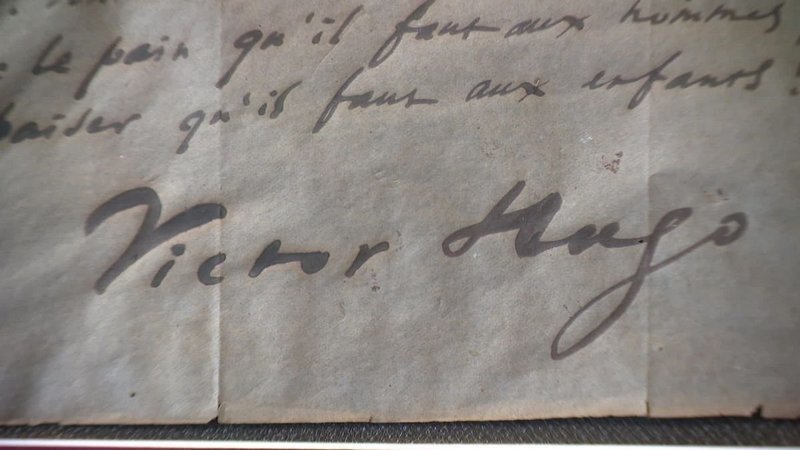 le pain qu'il faut aux hommes,
baiser qu'il faut aux enfants!
Victor Hugo